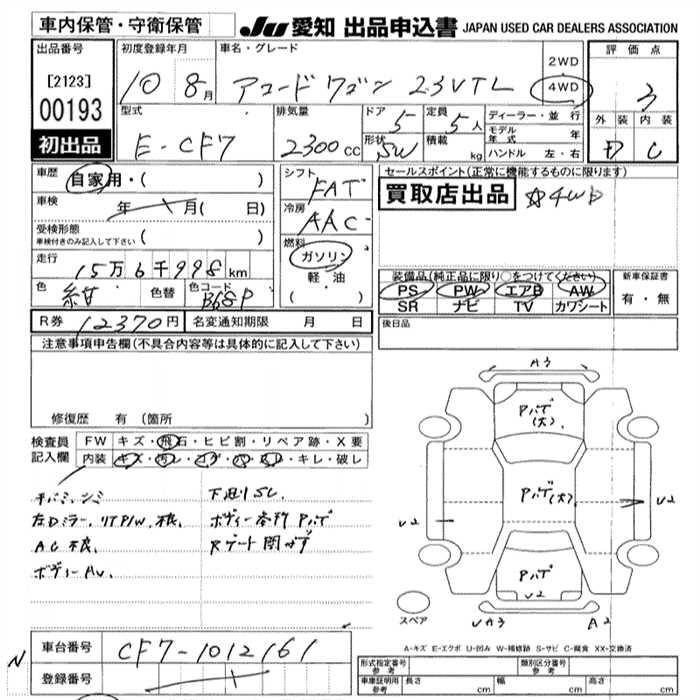 車内保管・守衛保管
JU 愛知 出品申込書 JAPAN USED CAR DEALERS ASSOCIATION
出品番号 初度登録年月 車名・グレード 評価点
[2123] 10 8月 アコードワゴン 2.3VTL 2WD 4WD 3
00193
初出品
型式 排気量 ドア 定員 ディーラー・並行 外装 内装
E-CF7 2300cc 5 5人 モデル年式 年 D C
形状 SW 積載 kg ハンドル 左・右
車歴 自家用・( ) シフト FAT セールスポイント(正常に機能するものに限ります)
車検 年 月( 日) 冷房 AAC 買取店出品 ☆4WD
受検形態 ( ) 燃料
車検付きのみ記入して下さい
走行 15万6千998km ガソリン
軽・油
・( )
色 紺 色替 色コード B68P
装備品(純正品に限り○をつけてください) 新車保証書
PS PW エアB AW 有・無
SR ナビ TV カワシート
R券 12370円 名変通知期限 月 日 後日品
注意事項申告欄(不具合内容等は具体的に記入して下さい)
修復歴 有(箇所
検査員 FW キズ・飛石・ヒビ割・リペア跡・X要
記入欄 内装 キズ・汚レ・コゲ・穴・スレ・キレ・破レ
下廻りSC
左Dミラー、リTP/W、不良、 ボディー各所Pハゲ
AC不良、 Rゲート開かず
ボディーAU、
A3
Pハゲ(大)
Pハゲ(大)
U2 U2
Pハゲ
U2
UA3 A2
スペア
A-キズ E-エクボ U-凹み W-補修跡 S-サビ C-腐食 XX-交換済
N 車台番号 CF7-1012161
登録番号
形式指定番号 参考 類別区分番号 参考
車庫証明用 参考 長さ cm 幅 cm 高さ cm